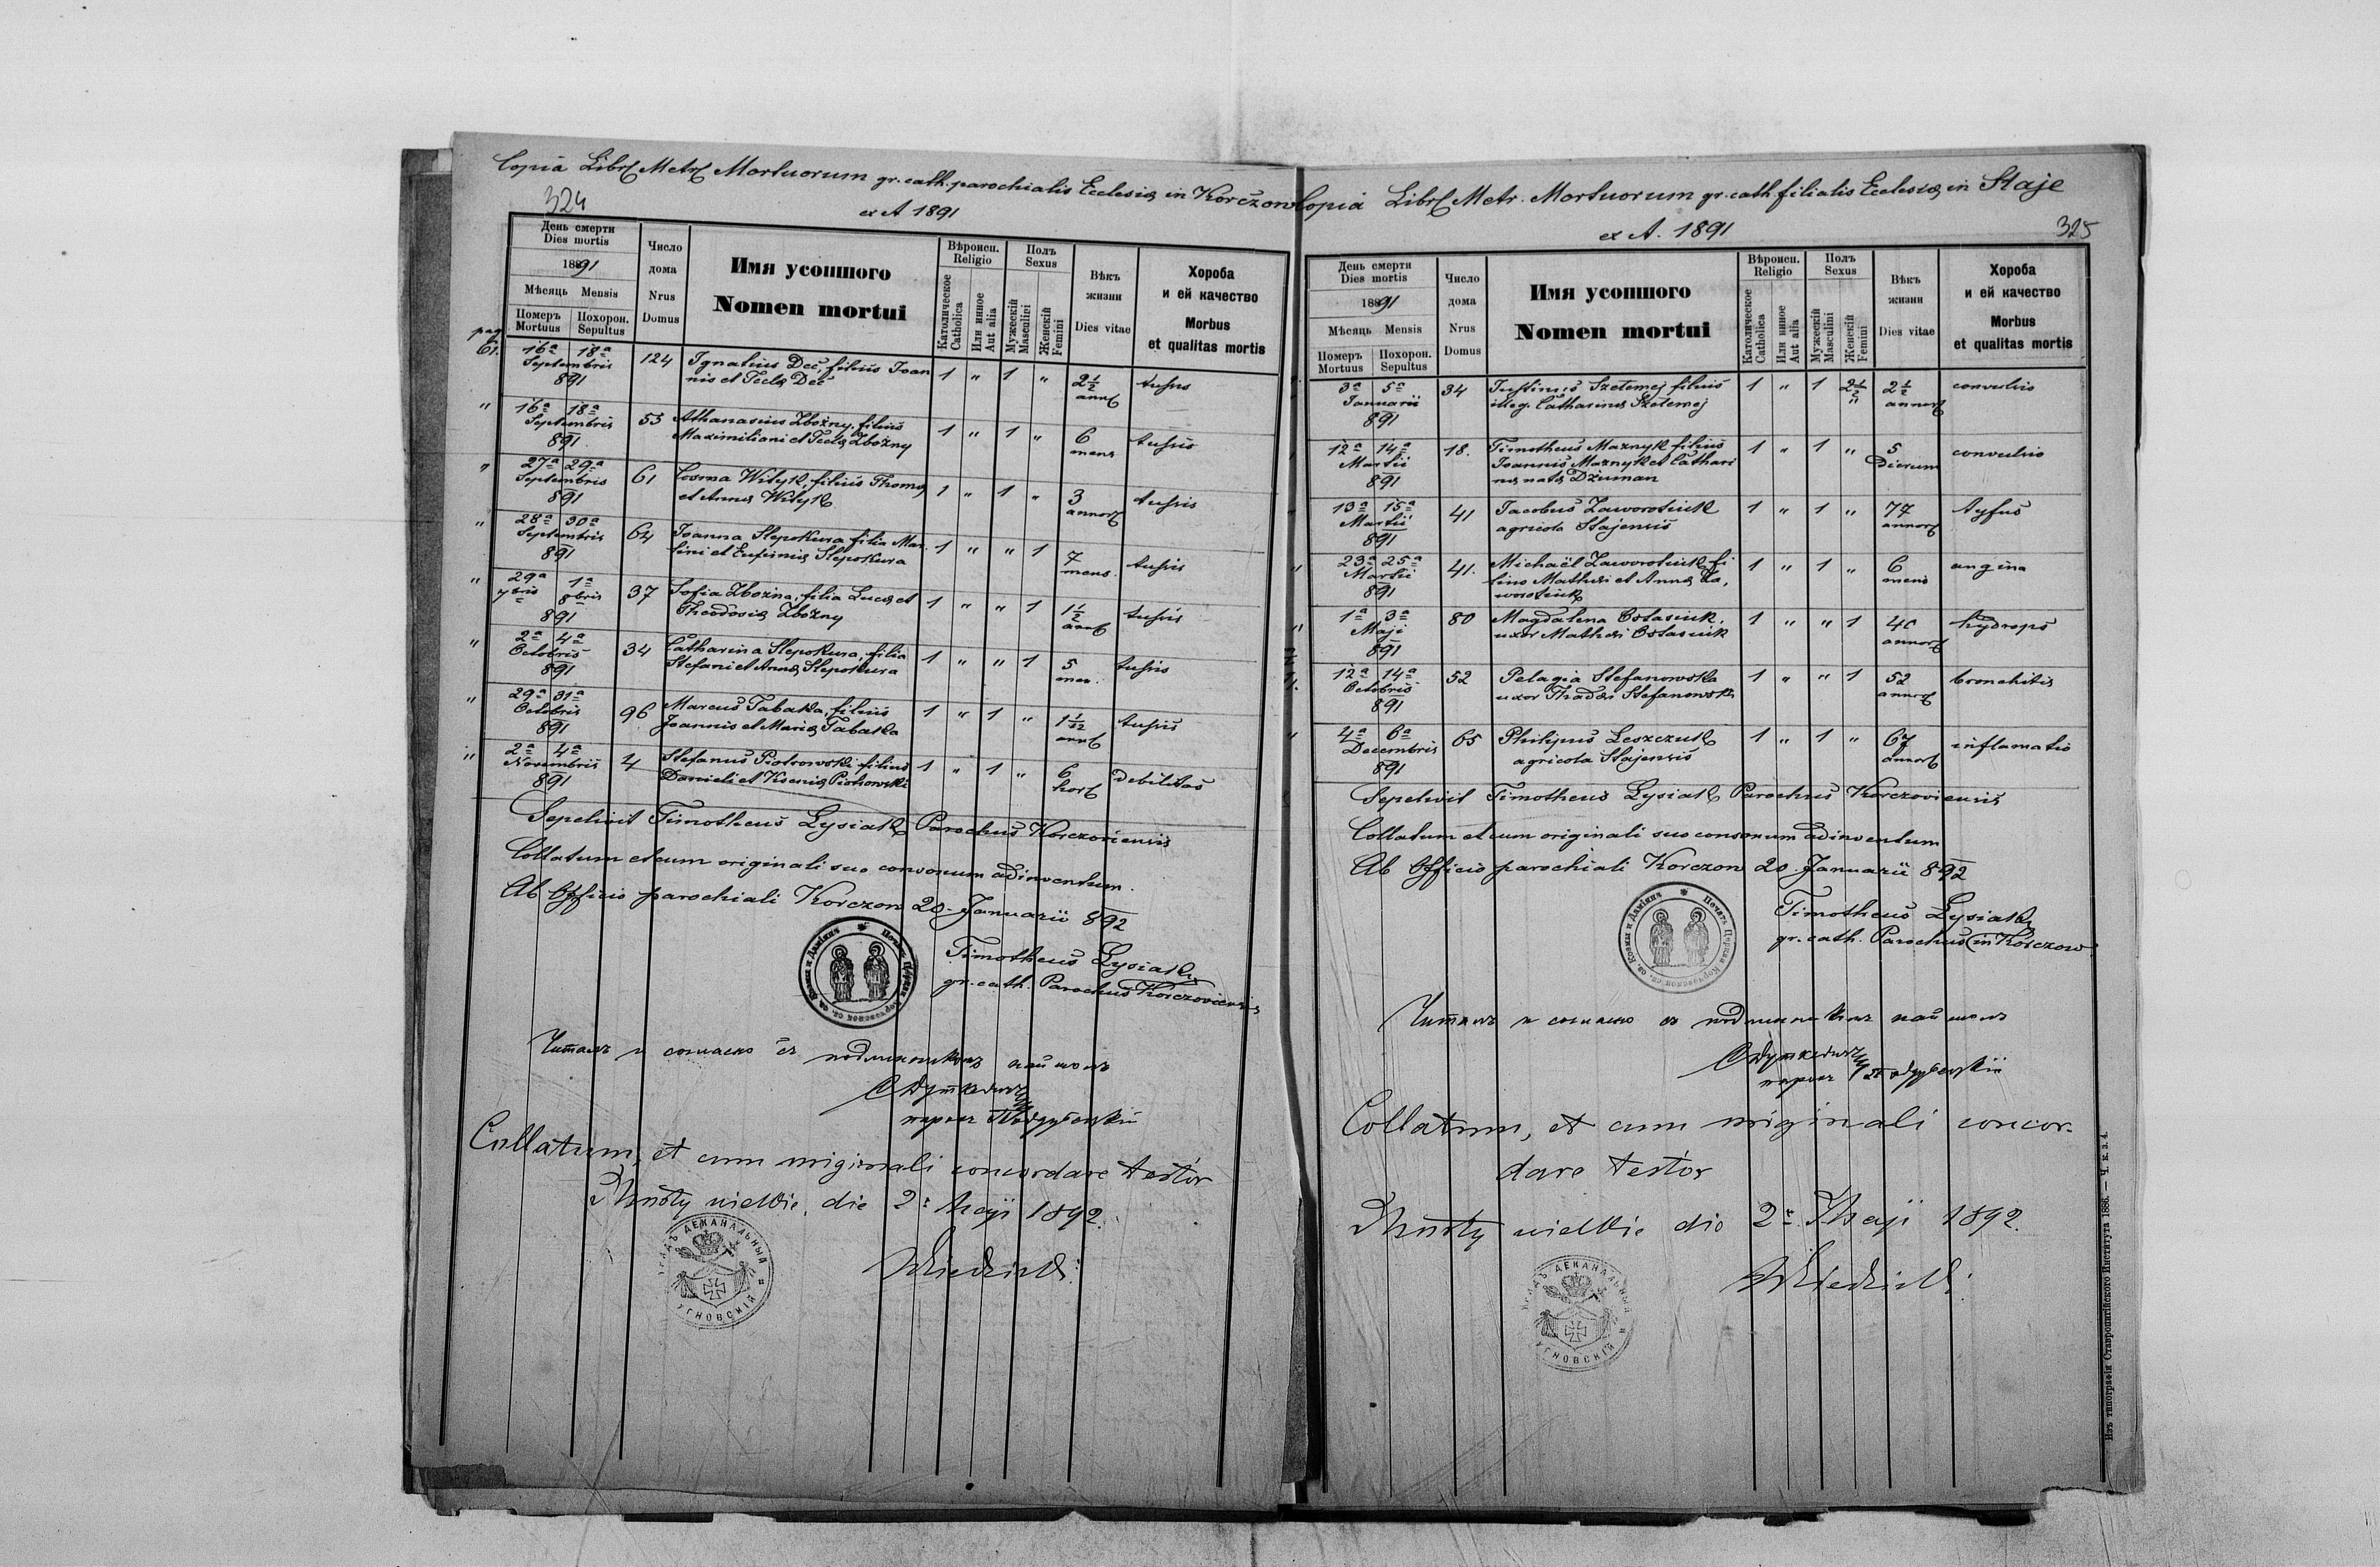 Copia Libr Metr Mortuorum gr. cath. parochialis Ecclesiæ in Korczow
324
ex A 1891
День смерти
Dies mortis
1891
Мѣсяць Mensis
Померъ Mortuus
Похорон. Sepultus
Число дома
Nrus Domus
Имя усопшого
Nomen mortui
Вѣроисп.
Religio
Католическое
Catholica
Или инное
Aut alia
Полъ
Sexus
Мужескій
Masculini
Женскій
Femini
Вѣкъ жизни
Dies vitae
Хороба
и ей качество
Morbus
et qualitas mortis
pag. 61.
16ª 18ª Septembris 891 124 Ignatius Dec, filius Joan
nis et Teclæ Dec 1 " 1 " 2½ ann tussis
" 16ª 18ª Septembris 891 53 Athanasius Zbożny, filius
Maximiliani et Teclæ Zbożny 1 " 1 " 6 mens tussis
" 27ª 29ª Septembris 891 61 Cosma Wityk, filius Thomæ
et Annæ Wityk 1 " 1 " 3 annor tussis
" 28ª 30ª Septembris 891 64 Joanna Slepokura filia Mar
tini et Eufimiæ Slepokura 1 " " 1 7 mens. tussis
" 29ª 7bris 1ª 8bris 891 37 Sofia Zbożna, filia Lucæ et
Theodosiæ Zbożny 1 " " 1 1½ ann tussis
" 2ª 4ª Octobris 891 34 Catharina Slepokura, filia
Stefani et Annæ Slepokura 1 " " 1 5 men. tussis
" 29ª 31ª Octobris 891 96 Marcus Tabaka, filius
Joannis et Mariæ Tabaka 1 " 1 " ann tussis
" 2ª 4ª Novembris 891 4 Stefanus Piotrowski filius
Danieli et Kseniæ Piotrowski 1 " 1 " 6 hor debilitas
Sepelivit Timotheus Lysiak Parochus Korczoviensis
Collatum et cum originali suo consonum adinventum.
Ab Officio parochiali Korczow 20. Januarii 892
Timotheus Lysiak
gr. cath. Parochus Korczoviensis
Читавъ и согласно съ подлинникомъ найшовъ
Collatum, et cum originali concordare testor
Mosty wielkie, die 2: Maji 1892.
УРЯДЪ ДЕКАНАЛЬНЫЙ УГНОВСКІЙ
Copia Libr Metr. Mortuorum gr. cath. filialis Ecclesiæ in Staje
ex A. 1891
325
День смерти
Dies mortis
1891
Мѣсяць Mensis
Померъ Mortuus
Похорон. Sepultus
Число дома
Nrus Domus
Имя усопшого
Nomen mortui
Вѣроисп.
Religio
Католическое
Catholica
Или инное
Aut alia
Полъ
Sexus
Мужескій
Masculini
Женскій
Femini
Вѣкъ жизни
Dies vitae
Хороба
и ей качество
Morbus
et qualitas mortis
3ª 5ª Januarii 891 34 Justinus Szetemej filius
illeg. Catharinæ Szetemej 1 " 1 " 2½ annor convulsio
12ª 14ª Martii 891 18. Timotheus Maznyk filius
Joannis Maznyk et Cathari
næ natæ Dziuman 1 " 1 " 5 Dierum convulsio
13ª 15ª Martii 891 41 Jacobus Zaworotiuk
agricola Stajensis 1 " 1 " 77 annor tyfus
" 23ª 25ª Martii 891 41. Michaël Zaworotiuk fi
lius Mathæi et Annæ Za,
worotiuk 1 " 1 " 6 mens angina
" 1ª 3ª Maji 891 80 Magdalena Ostasiuk,
uxor Mathæi Ostasiuk 1 " " 1 40 annor hydrops
12ª 14ª Octobris 891 52 Pelagia Stefanowska
uxor Thadæi Stefanowski 1 " " 1 52 annor bronchitis
" 4ª 6ª Decembris 891 65 Philipus Leszczuk
agricola Stajensis 1 " 1 " 67 annor inflamatio
Sepelivit Timotheus Lysiak Parochus Korczoviensis
Collatum et cum originali suo consonum adinventum
Ab Officio parochiali Korczow 20. Januarii 892
Timotheus Lysiak
gr. cath. Parochus in Korczow
Читавъ и согласно съ подлинникомъ найшовъ
Collatum, et cum originali concor-
dare testor
Mosty wielkie die 2: Maji 1892.
УРЯДЪ ДЕКАНАЛЬНЫЙ УГНОВСКІЙ
Изъ типографіи Ставропигійского Института 1886. — Ч. к. з. 4.